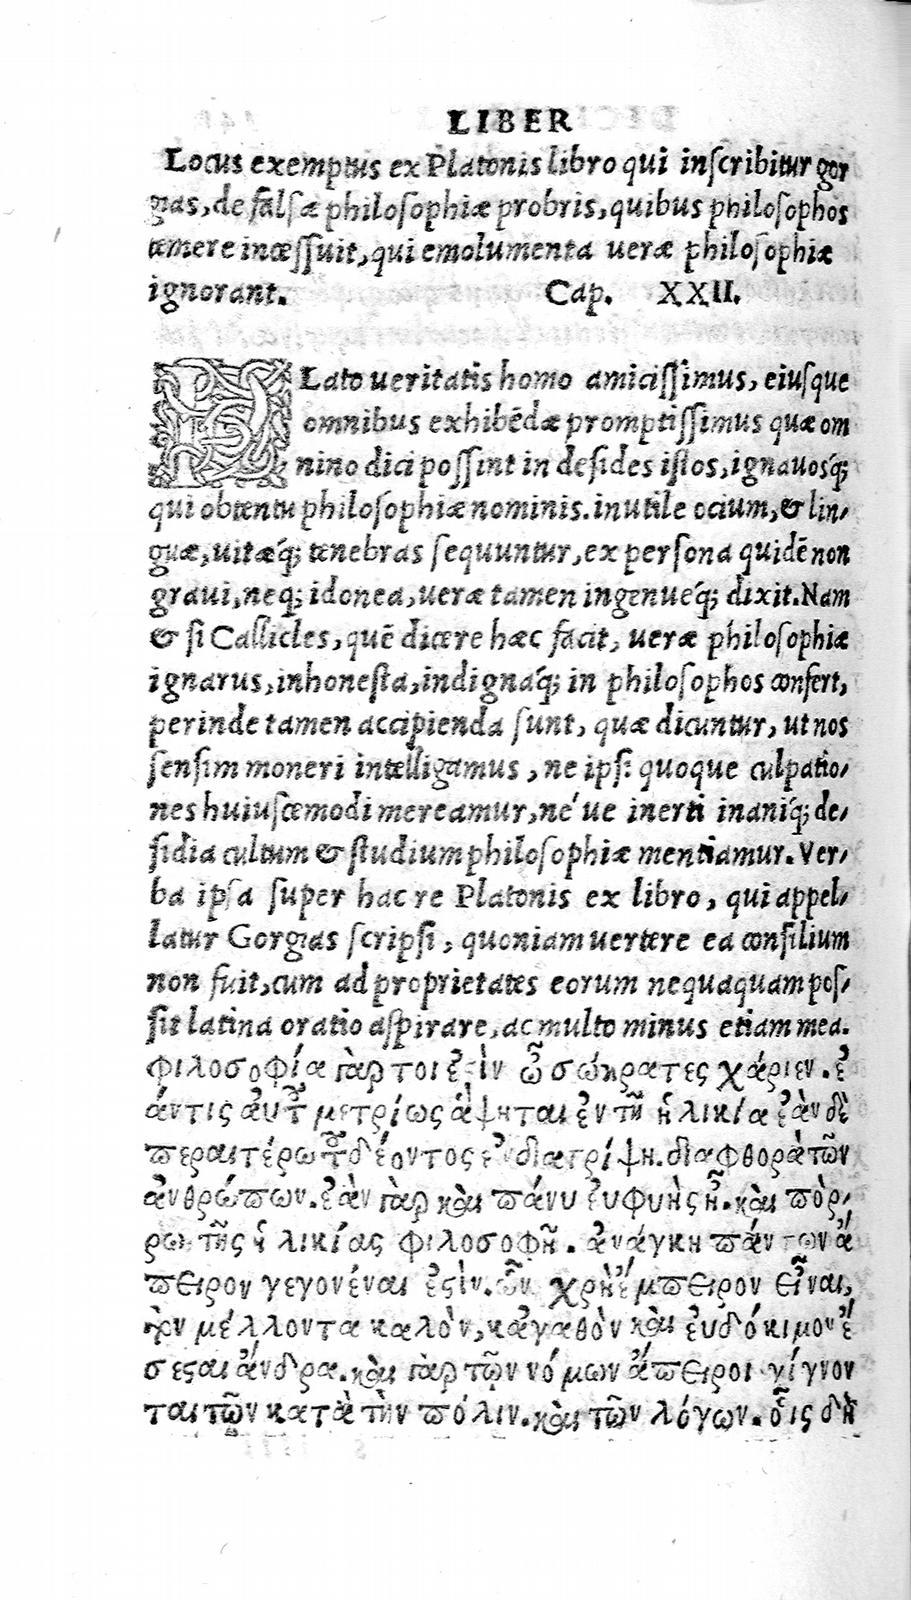 LIBER
Locus exemptus ex Platonis libro qui inscribitur gor
gias, de falsæ philosophiæ probris, quibus philosophos
temere incessuit, qui emolumenta ueræ philosophiæ
ignorant. Cap. XXII.
PLato ueritatis homo amicissimus, eiusque
omnibus exhibẽdæ promptissimus quæ om
nino dici possint in desides istos, ignauosq́;
qui obtentu philosophiæ nominis. inutile ocium, & lin-
guæ, uitæq́; tenebras sequuntur, ex persona quidẽ non
graui, neq; idonea, ueræ tamen ingenueq́; dixit. Nam
& si Callicles, quẽ dicere hæc facit, ueræ philosophiæ
ignarus, inhonesta, indignaq́; in philosophos confert,
perinde tamen accipienda sunt, quæ dicuntur, ut nos
sensim moneri intelligamus, ne ipsi quoque culpatio-
nes huiuscemodi mereamur, né ue inerti inaniq́; de-
sidia cultum & studium philosophiæ mentiamur. Ver-
ba ipsa super hac re Platonis ex libro, qui appel-
latur Gorgias scripsi, quoniam uertere ea consilium
non fuit, cum ad proprietates eorum nequaquam pos-
sit latina oratio aspirare, ac multo minus etiam mea.
φιλοσοφία γὰρ τοι ἐςὶν ὦ σώκρατες χάριεν. ἐ
άντις αὐτ͂ μετρίως ἅψηται ἐν τῇ ἡλικία ἐὰν δὲ
περαιτέρω τ͂ δέοντος ἐνδιατρίψη. διαφθορὰ τῶν
ἀνθρώπων. ἐὰν γὰρ καὶ πάνυ ἐυφυὴς ᾖ. καὶ πὸρ-
ρω τῆς ἡλικίας φιλοσοφῆ. ἀνάγκη πάντων ἄ
πειρον γεγονέναι ἐςὶν. ὧν χρὴ ἔμπειρον εἶναι,
τὸν μέλλοντα καλὸν, κἀγαθὸν καὶ ἐυδόκιμον ἔ
σεςαι ἄνδρα. καὶ γὰρ τῶν νόμων ἄπειροι γίγνον
ται τῶν κατὰ τὴν πόλιν. καὶ τῶν λόγων. οἷς δὴ